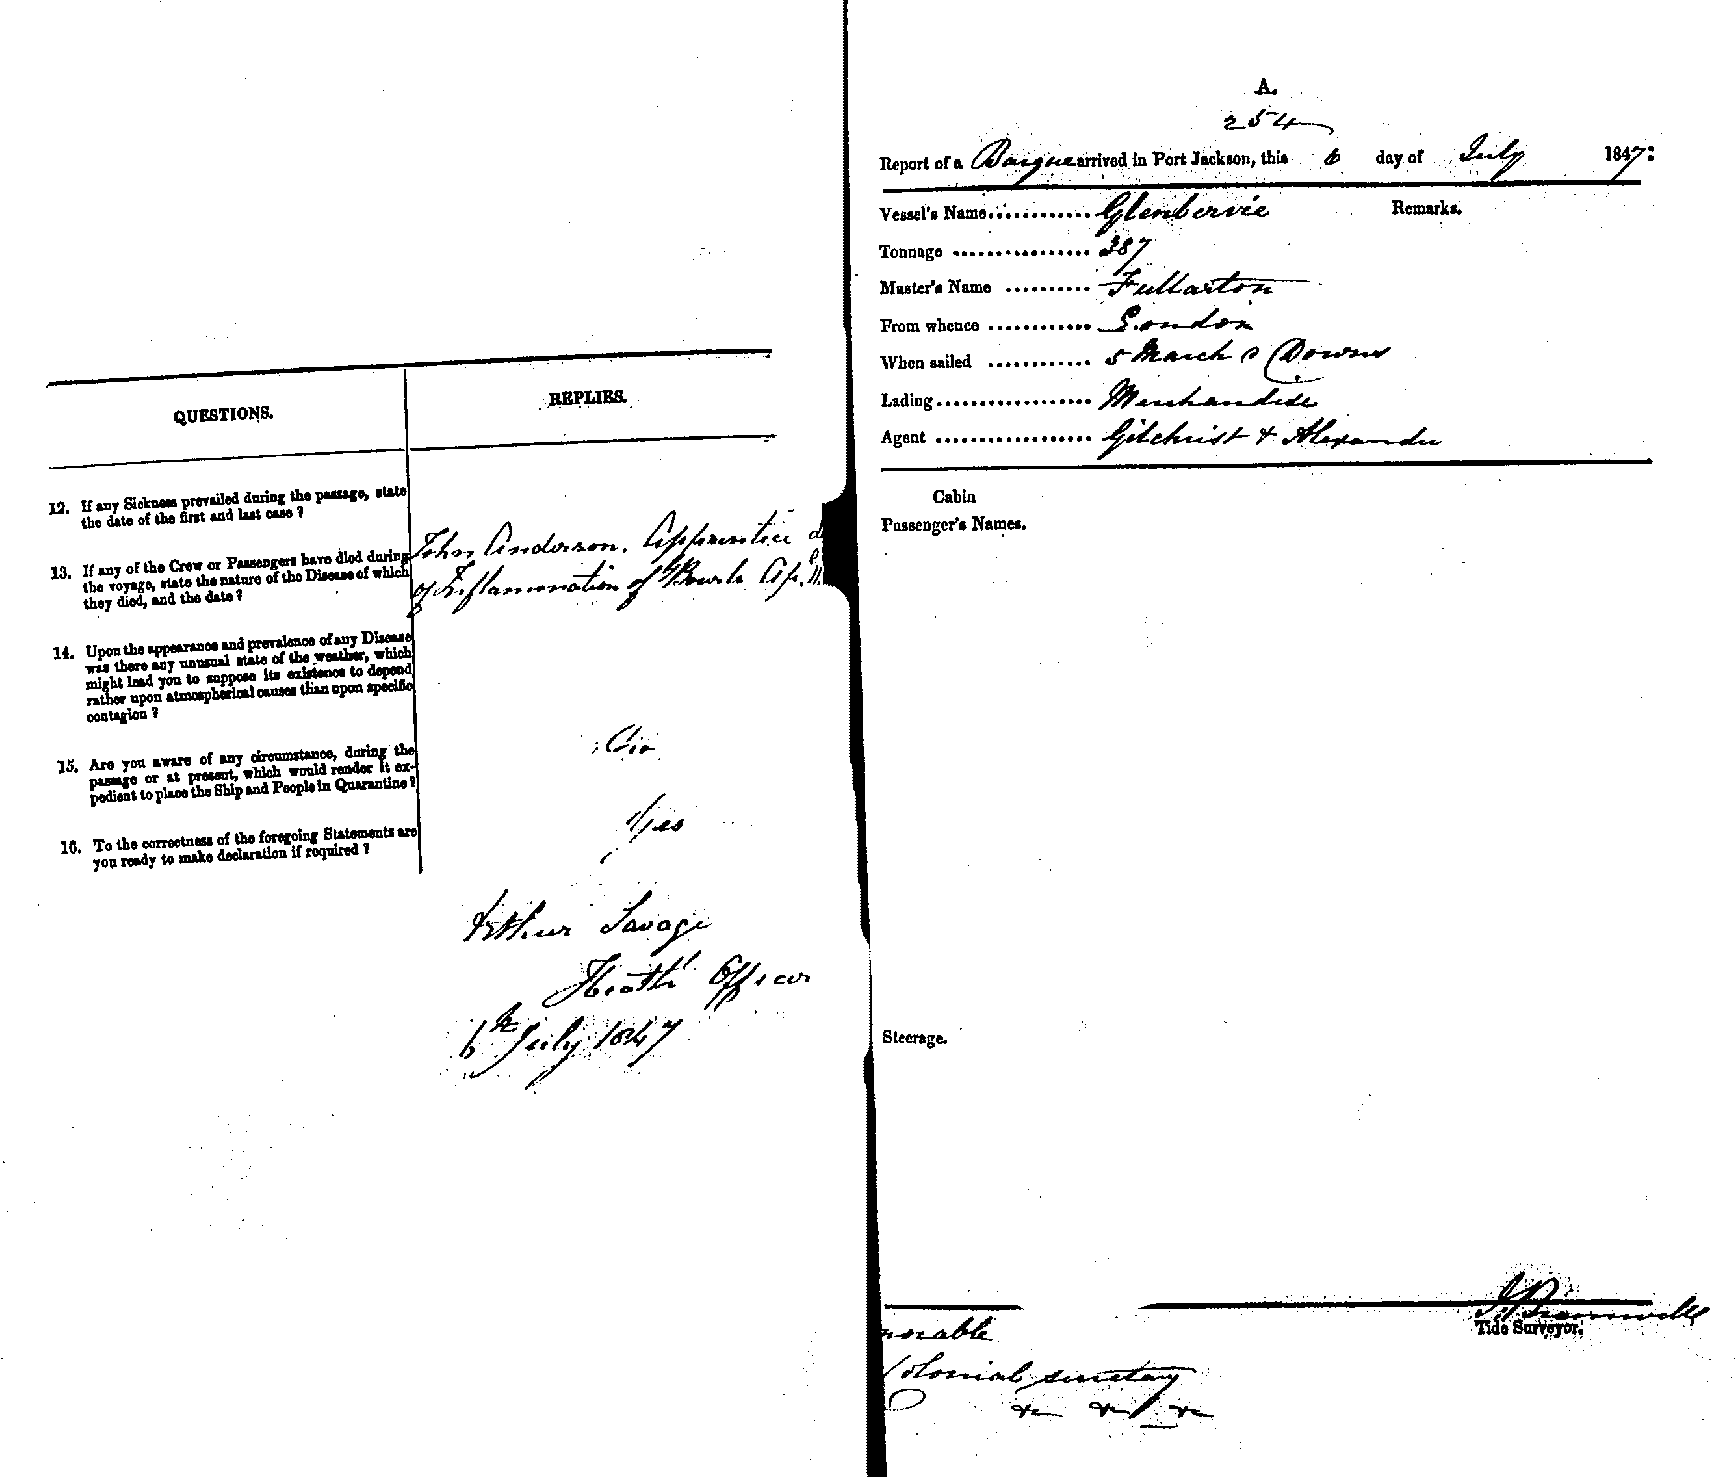 QUESTIONS.
REPLIES.
12. If any Sickness prevailed during the passage, state
the date of the first and last case ?
13. If any of the Crew or Passengers have died during
the voyage, state the nature of the Disease of which
they died, and the date ?
John Anderson. Apprentice
of Inflammation of Bowels Ap.
14. Upon the appearance and prevalence of any Disease
was there any unusual state of the weather, which
might lead you to suppose its existence to depend
rather upon atmospherical causes than upon specific
contagion ?
15. Are you aware of any circumstance, during the
passage or at present, which would render it ex-
pedient to place the Ship and People in Quarantine ?
No
16. To the correctness of the foregoing Statements are
you ready to make declaration if required ?
Yes
Arthur Savage
Health Officer
6th July 1847
A.
254
Report of a Barque arrived in Port Jackson, this 6 day of July 1847:
Vessel's Name Glenbervie Remarks.
Tonnage 387
Master's Name Fullarton
From whence London
When sailed 5 March Downs
Lading Merchandise
Agent Gilchrist & Alexander
Cabin
Passenger's Names.
Steerage.
Tide Surveyor.
norable
Colonial Secretary
&c &c &c